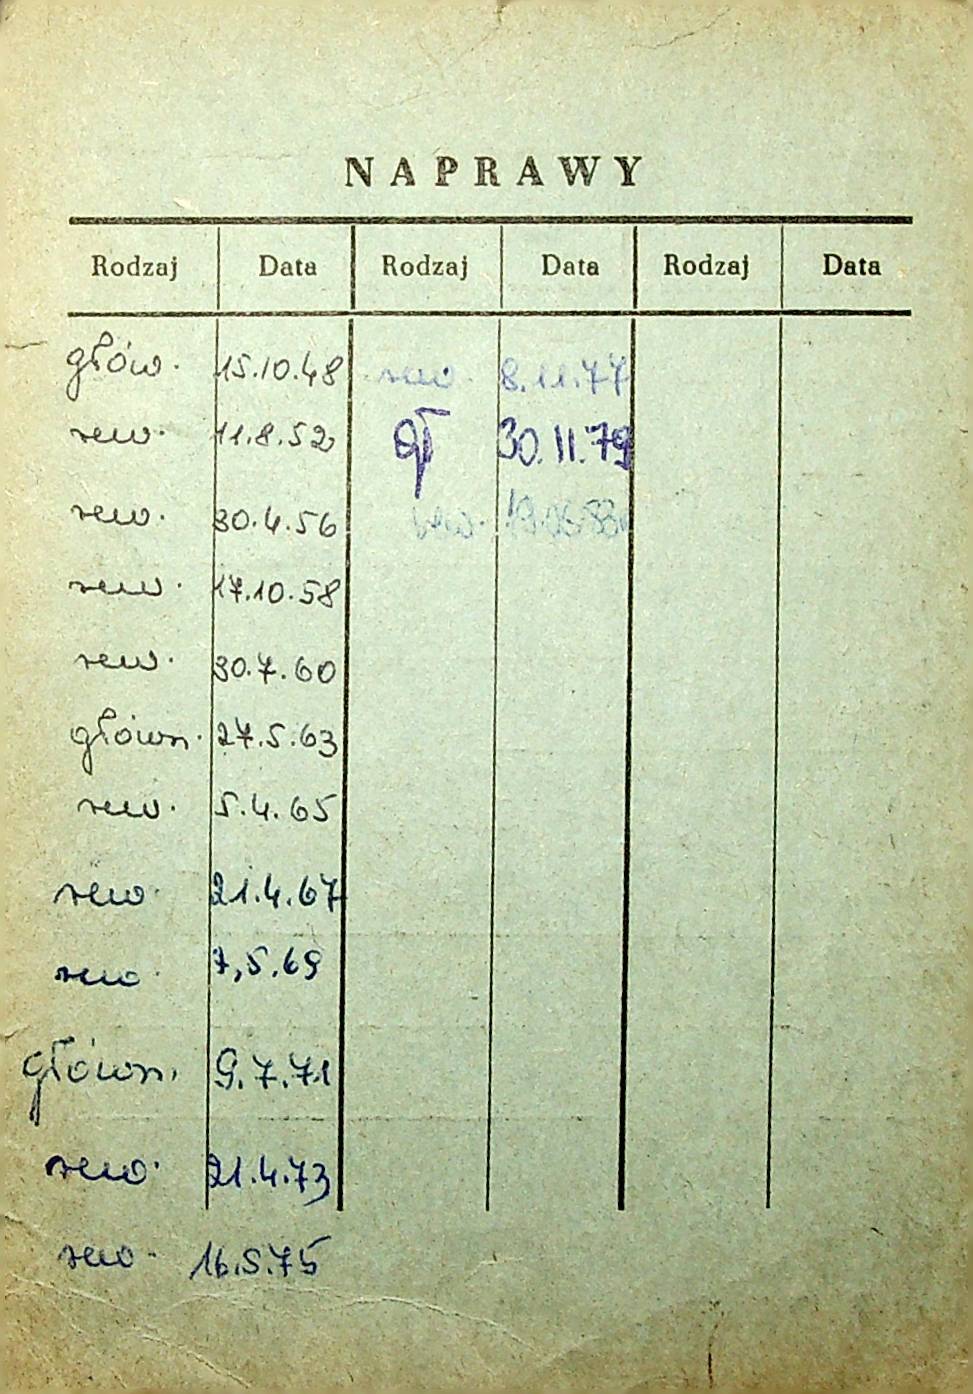 NAPRAWY
Rodzaj Data Rodzaj Data Rodzaj Data
głów. 15.10.48 rew. 8.11.77
rew. 11.8.52 gł 30.11.79
rew. 30.4.56 rew.
rew. 17.10.58
rew. 30.7.60
główn. 27.5.63
rew. 5.4.65
rew. 21.4.67
rew. 7,5.69
główn. 9.7.71
rew. 21.4.73
rew. 16.5.75